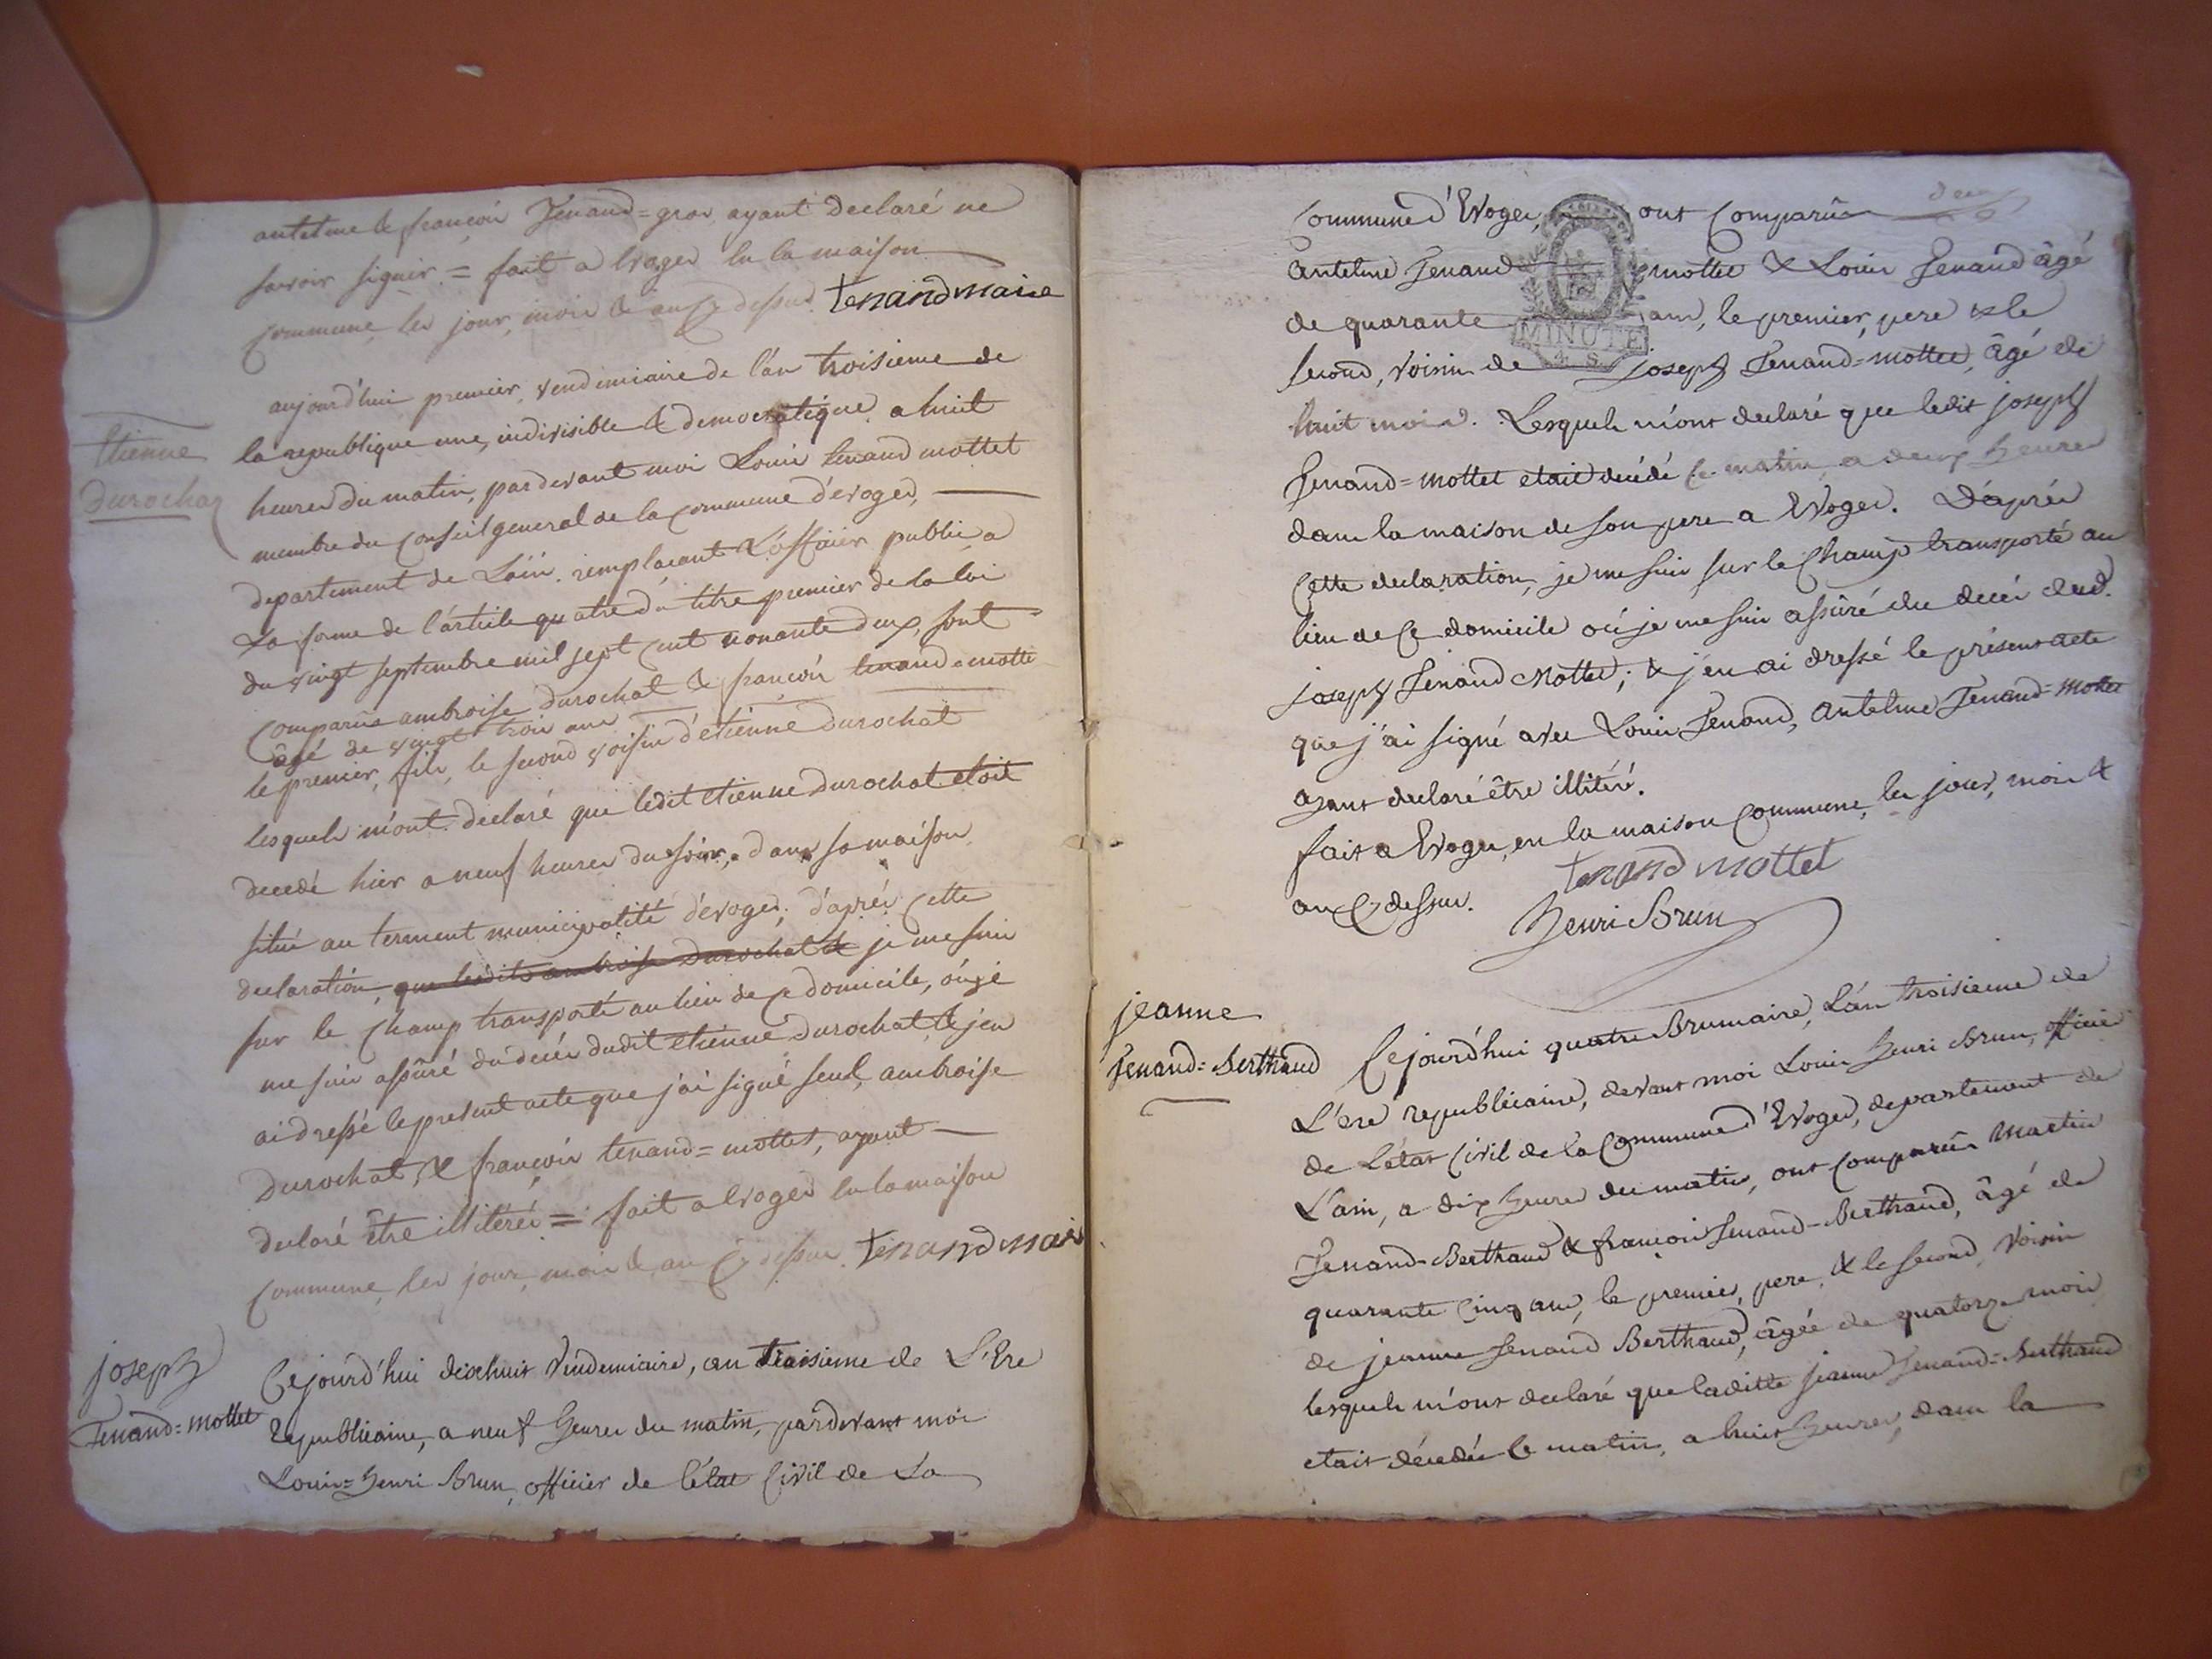 antelme & françois Tenand=gros, ayant declaré ne
savoir signer = fait a Evoges en la maison
commune, les jour, mois & an cy dessus. tenand maire
Etienne
Durochat
aujourd'hui premier, vendimiaire de l'an troisieme de
la republique une, indivisible & democratique, a huit
heures du matin, pardevant moi Louis tenand mottet
membre du conseil general de la commune d'evoges,
departement de Lain, remplacant L'officier public, a
La forme de l'article quatre du titre premier de la loi
du vingt septembre mil sept cent nonante deux, sont
comparus ambroise durochat & françois tenand=mottet
âgé de vingt trois ans
le premier, fils, le second voisin d'etienne Durochat
lesquels m'ont declaré que ledit etienne Durochat etoit
decedé hier a neuf heures du soir, dans sa maison
situé au terment municipalité d'evoges; d'après cette
declaration, que lesdits ambroise Durochat & je me suis
sur le champ transporté au lieu de ce domicile, où je
me suis assûré du decès dudit etienne durochat, & j'en
ai dressé le present acte que j'ai signé seul, ambroise
Durochat, & françois tenand=mottet, ayant
declaré être illiterés = fait a Evoges en la maison
commune, les jour, mois & an cy dessus. tenand mair
joseph
Tenand=mottet
Cejourd'hui dixhuit Vendemiaire, an troisieme de L'Ere
Republicaine, a neuf heures du matin, pardevant moi
Louis=henri Brun, officier de l'état Civil de La
commune d'Evoges, ont comparûs
Antelme Tenand mottet & Louis Tenand âgé
MINUTE
de quarante ans, le premier, pere & le
second, voisin de joseph Tenand=mottet, âgé de
huit mois. Lesquels m'ont declaré que ledit joseph
Tenand=mottet etait décédé ce matin, a deux heures
dans la maison de son pere a Evoges. D'après
Cette declaration, je me suis sur le Champ transporté au
lieu de ce domicile où je me suis assûré du decès dud.
joseph Tenand Mottet; & j'en ai dressé le présent acte
que j'ai signé avec Louis Tenand, Antelme Tenand=mottet
ayant declaré être illitéré.
fait a Evoges, en la maison Commune, les jour, mois &
an cy dessus. tenand mottet
Henri Brun
jeanne
Tenand=Berthaud
Cejourd'hui quatre Brumaire, L'an troisieme de
L'ere republicaine, devant moi Louis henri Brun, officier
de L'état Civil de la Commune d'Evoges, departement de
L'ain, a dix heures du matin, ont comparûs Martin
Tenand-Berthaud & françois Tenand-Berthaud, âgé de
quarante cinq ans, le premier, pere, & le second, voisin
de jeanne Tenand Berthaud, âgée de quatorze mois
lesquels m'ont declaré que laditte jeanne Tenand=Berthaud
etait décédée ce matin, a huit heures, dans la